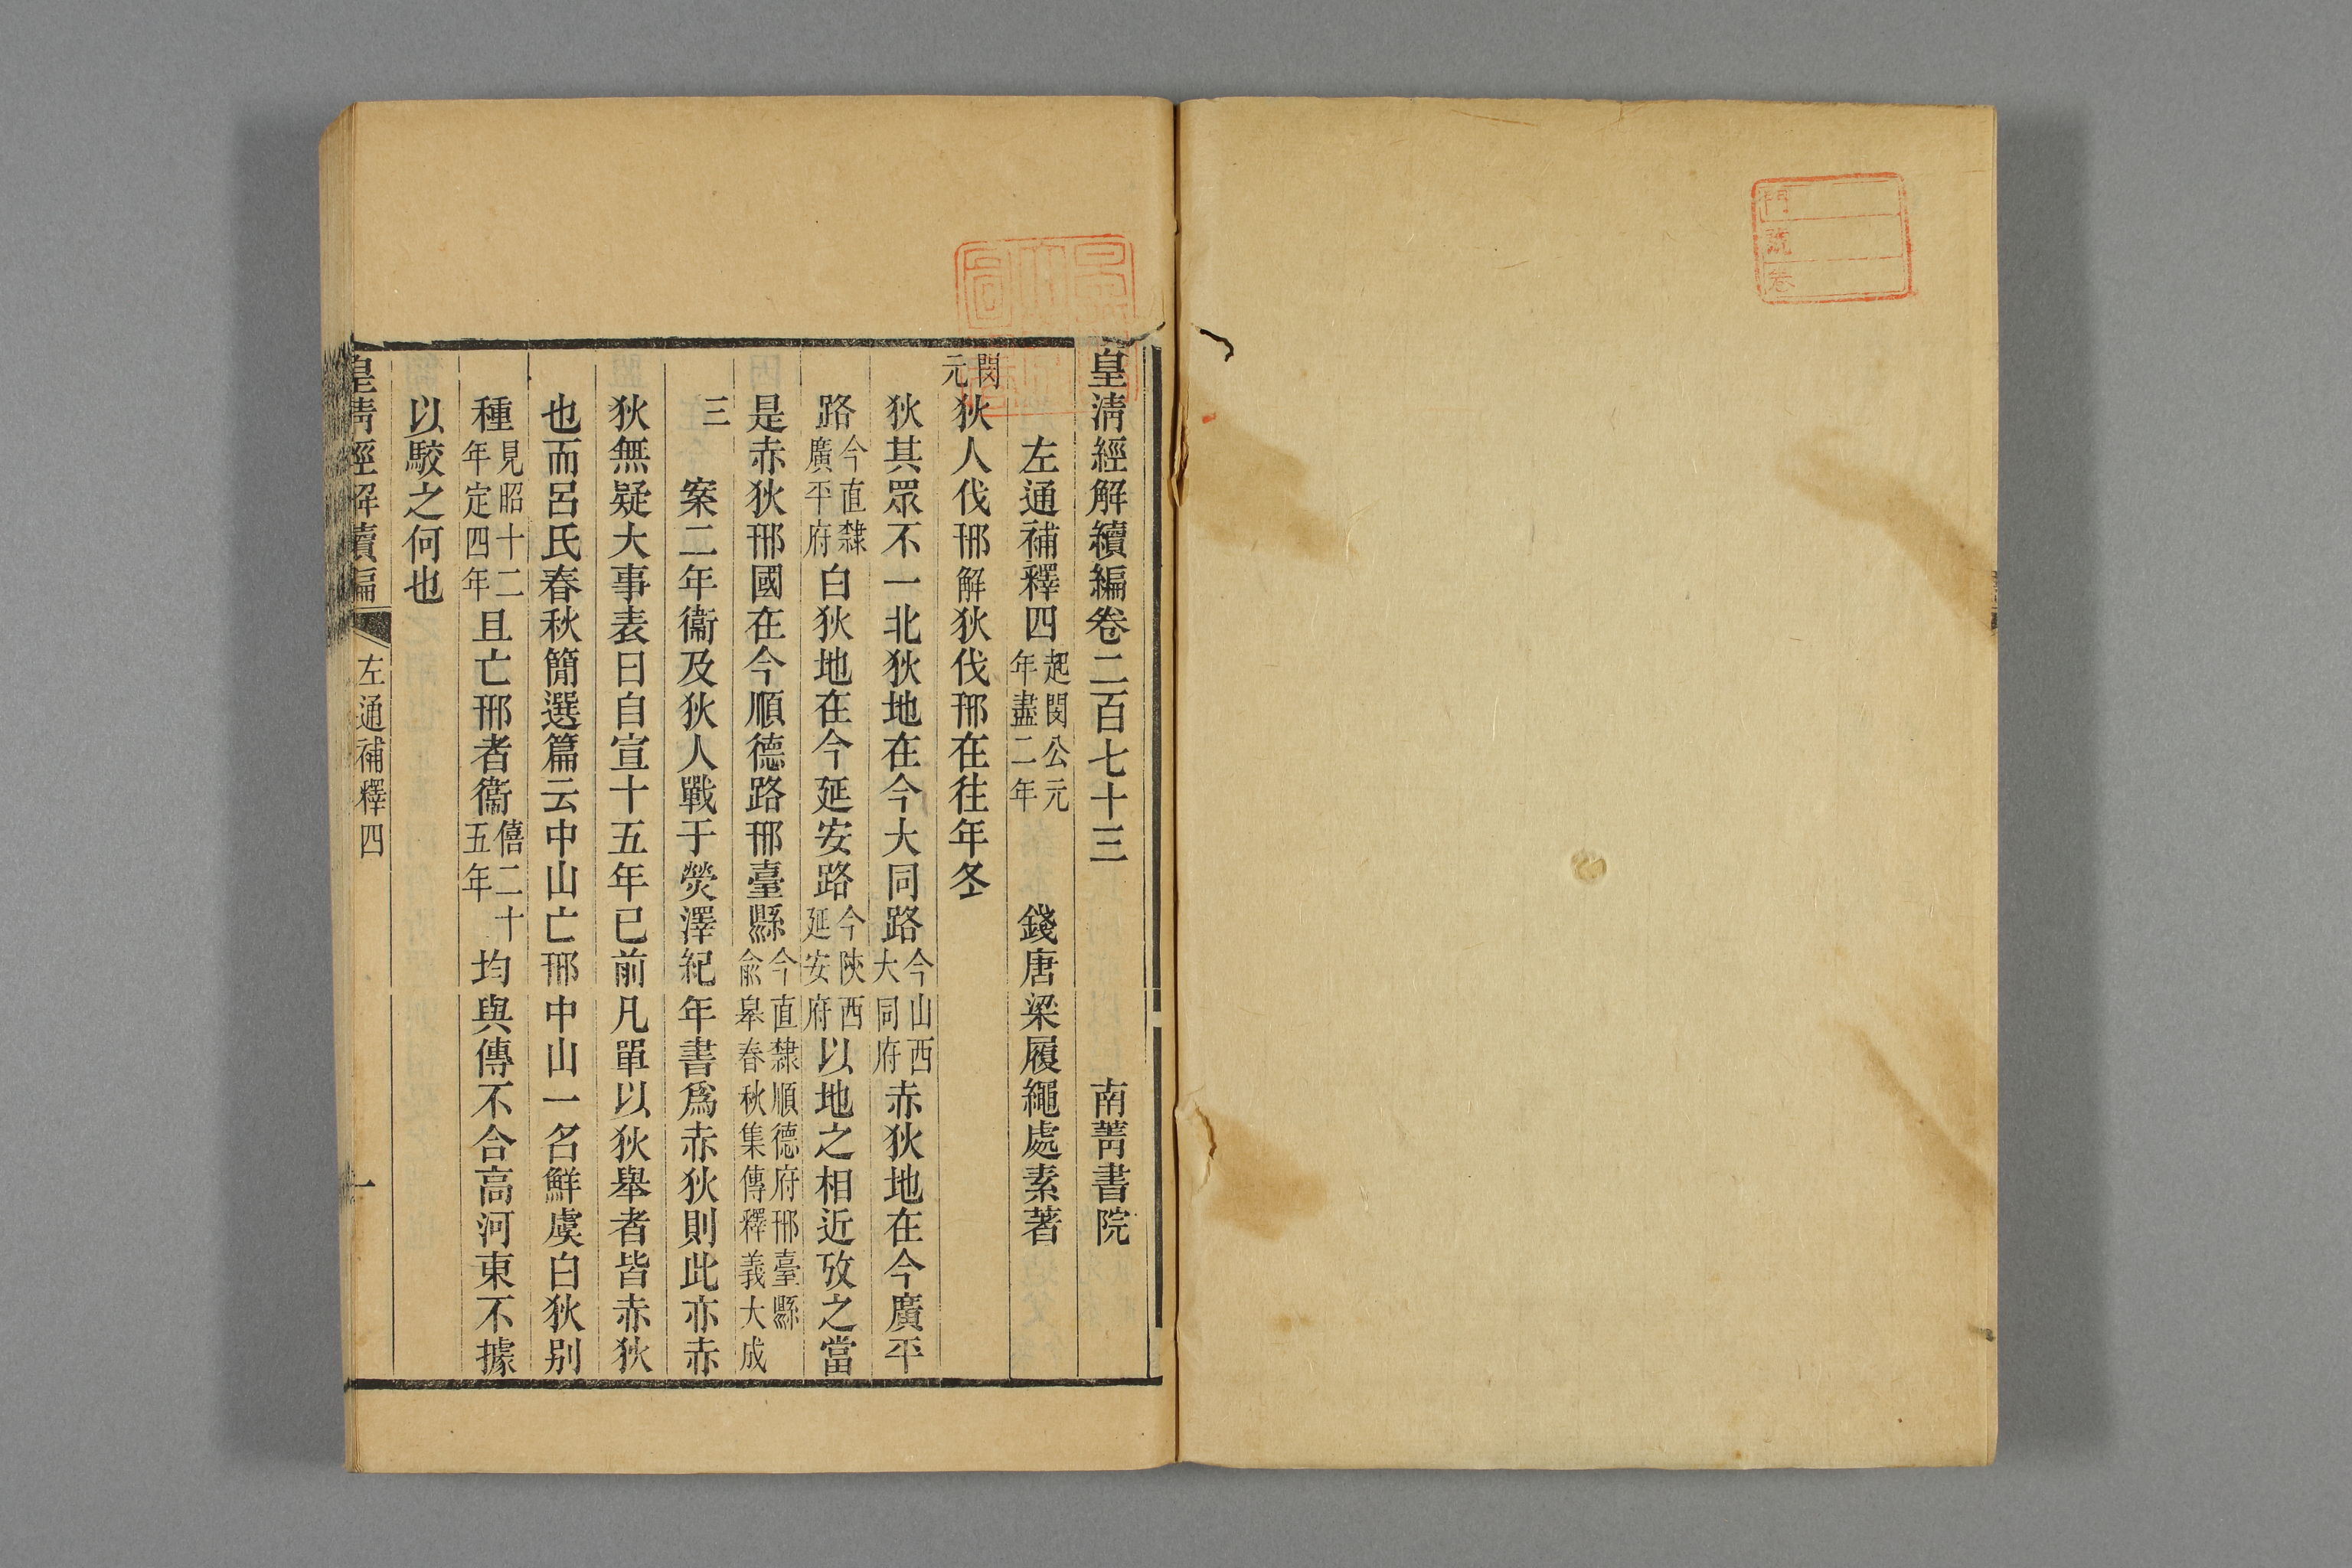 門
號
卷
皇清經解續編卷二百七十三　南菁書院
左通補釋四起閔公元年盡二年　錢唐梁履繩處素著
閔元狄人伐邢解狄伐邢在往年冬
狄其眾不一北狄地在今大同路今山西大同府赤狄地在今廣平
路今直隸廣平府白狄地在今延安路今陝西延安府以地之相近攷之當
是赤狄邢國在今順德路邢臺縣今直隸順德府邢臺縣俞皋春秋集傳釋義大成
三　案二年衞及狄人戰于熒澤紀年書爲赤狄則此亦赤
狄無疑大事表曰自宣十五年已前凡單以狄舉者皆赤狄
也而呂氏春秋簡選篇云中山亡邢中山一名鮮虞白狄别
種見昭十二年定四年且亡邢者衞僖二十五年均與傳不合高河東不據
以駮之何也
皇清經解續編　左通補釋四　一